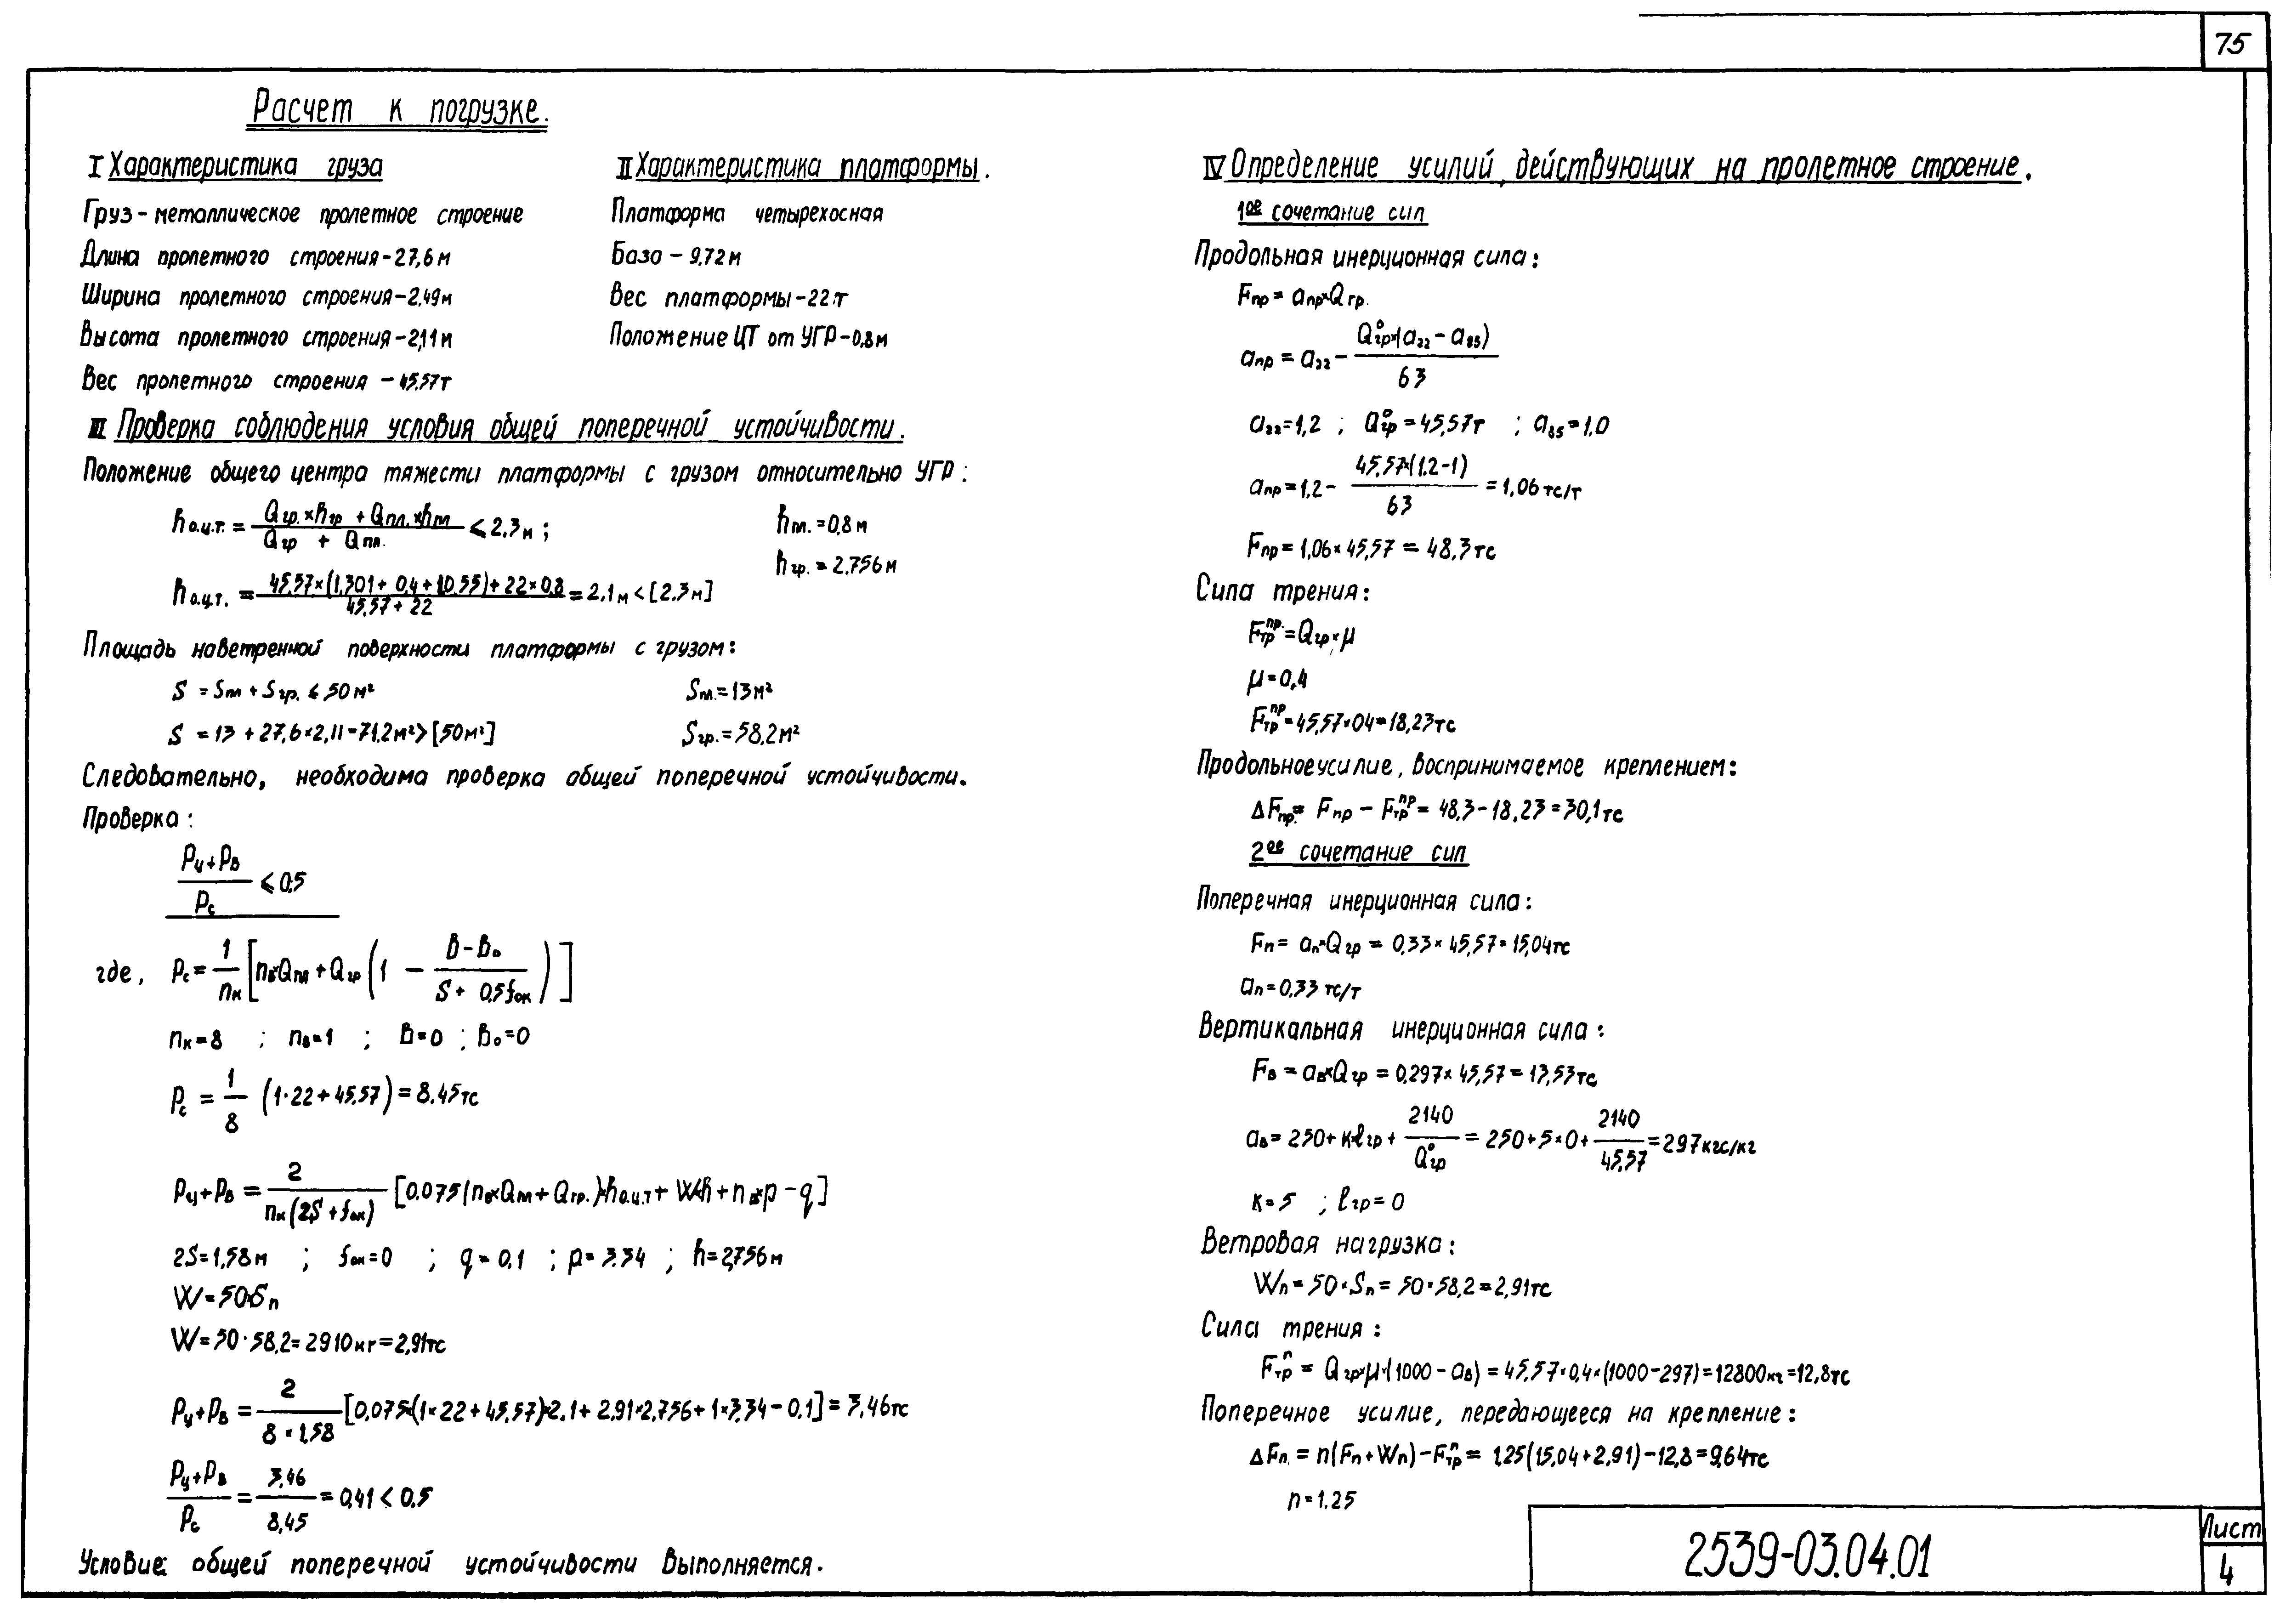 75
Расчет к погрузке.
I Характеристика груза
Груз - металлическое пролетное строение
Длина пролетного строения - 27,6 м
Ширина пролетного строения - 2,49 м
Высота пролетного строения - 2,11 м
Вес пролетного строения - 45,57 т
II Характеристика платформы.
Платформа четырехосная
База - 9,72 м
Вес платформы - 22 т
Положение ЦТ от УГР - 0,8 м
III Проверка соблюдения условия общей поперечной устойчивости.
Положение общего центра тяжести платформы с грузом относительно УГР:
hо.ц.т. = (Qгр. × hгр + Qпл. × hпл) / (Qгр + Qпл.) ⩽ 2.3 м ; hпл. = 0,8 м
hгр. = 2.756 м
hо.ц.т. = (45,57 × (1,301 + 0,4 + 1 0.55) + 22 × 0,8) / (45,57 + 22) = 2.1 м < [2.3 м]
Площадь наветренной поверхности платформы с грузом:
S = Sпл + Sгр. ⩽ 50 м² Sпл. = 13 м²
S = 13 + 27,6 × 2,11 = 71,2 м² > [50 м²] Sгр. = 58,2 м²
Следовательно, необходима проверка общей поперечной устойчивости.
Проверка:
(Рц + Рв) / Рс ⩽ 0,5
где, Рс = 1/nк [nв × Qпл + Qгр (1 - (в - во) / (S + 0,5fок))]
nк = 8 ; nв = 1 ; в = 0 ; во = 0
Рс = 1/8 (1 · 22 + 45,57) = 8.45 тс
Рц + Рв = 2 / (nк (2S + fок)) [0.075 (nв × Qпл + Qгр.) × hо.ц.т + W × h + nв × р - q]
2S = 1,58 м ; fок = 0 ; q = 0,1 ; р = 3.34 ; h = 2,756 м
W = 50 × Sп
W = 50 · 58,2 = 2910 кг = 2,91 тс
Рц + Рв = 2 / (8 × 1,58) [0,075 × (1 × 22 + 45,57) × 2.1 + 2.91 × 2,756 + 1 × 3,34 - 0,1] = 3,46 тс
(Рц + Рв) / Рс = 3,46 / 8,45 = 0,41 < 0.5
Условие общей поперечной устойчивости выполняется.
IV Определение усилий, действующих на пролетное строение.
1ое сочетание сил
Продольная инерционная сила:
Fпр = апр × Qгр.
апр = а22 - Q°гр × (а22 - а85) / 63
а22 = 1,2 ; Q°гр = 45,57 т ; а85 = 1,0
апр = 1,2 - 45,57 × (1.2 - 1) / 63 = 1,06 тс/т
Fпр = 1,06 × 45,57 = 48,3 тс
Сила трения:
Fтр пр. = Qгр × μ
μ = 0,4
Fтр пр = 45,57 × 04 = 18,23 тс
Продольное усилие, воспринимаемое креплением:
ΔFпр. = Fпр - Fтр пр = 48,3 - 18,23 = 30,1 тс
2ое сочетание сил
Поперечная инерционная сила:
Fп = ап × Qгр = 0,33 × 45,57 = 15,04 тс
ап = 0,33 тс/т
Вертикальная инерционная сила:
Fв = ав × Qгр = 0,297 × 45,57 = 13,53 тс
ав = 250 + к × lгр + 2140 / Q°гр = 250 + 5 × 0 + 2140 / 45,57 = 297 кгс/кг
к = 5 ; lгр = 0
Ветровая нагрузка:
Wп = 50 × Sп = 50 · 58,2 = 2,91 тс
Сила трения:
Fтр п = Qгр × μ · (1000 - ав) = 45,57 × 0,4 × (1000 - 297) = 12800 кг = 12,8 тс
Поперечное усилие, передающееся на крепление:
ΔFп. = n (Fп + Wп) - Fтр п = 1,25 (15,04 + 2,91) - 12,8 = 9,64 тс
n = 1.25
2539-03.04.01
Лист
4